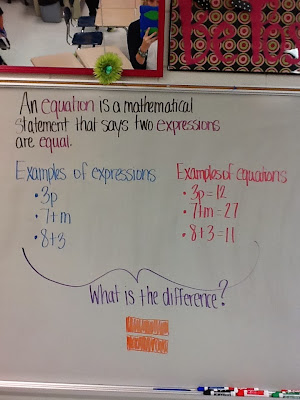 An equation is a mathematical
statement that says two expressions
are equal.
Examples of expressions
• 3p
• 7+m
• 8+3
Examples of equations
• 3p = 12
• 7+m = 27
• 8+3 = 11
What is the difference?